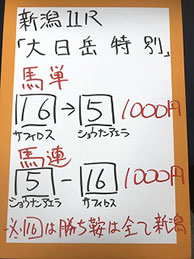 新潟11R
「大日岳特別」
馬単
16→5 1000円
サフィロス ショウナンアエラ
馬連
5-16 1000円
ショウナンアエラ サフィロス
※16は勝ち鞍は全て新潟